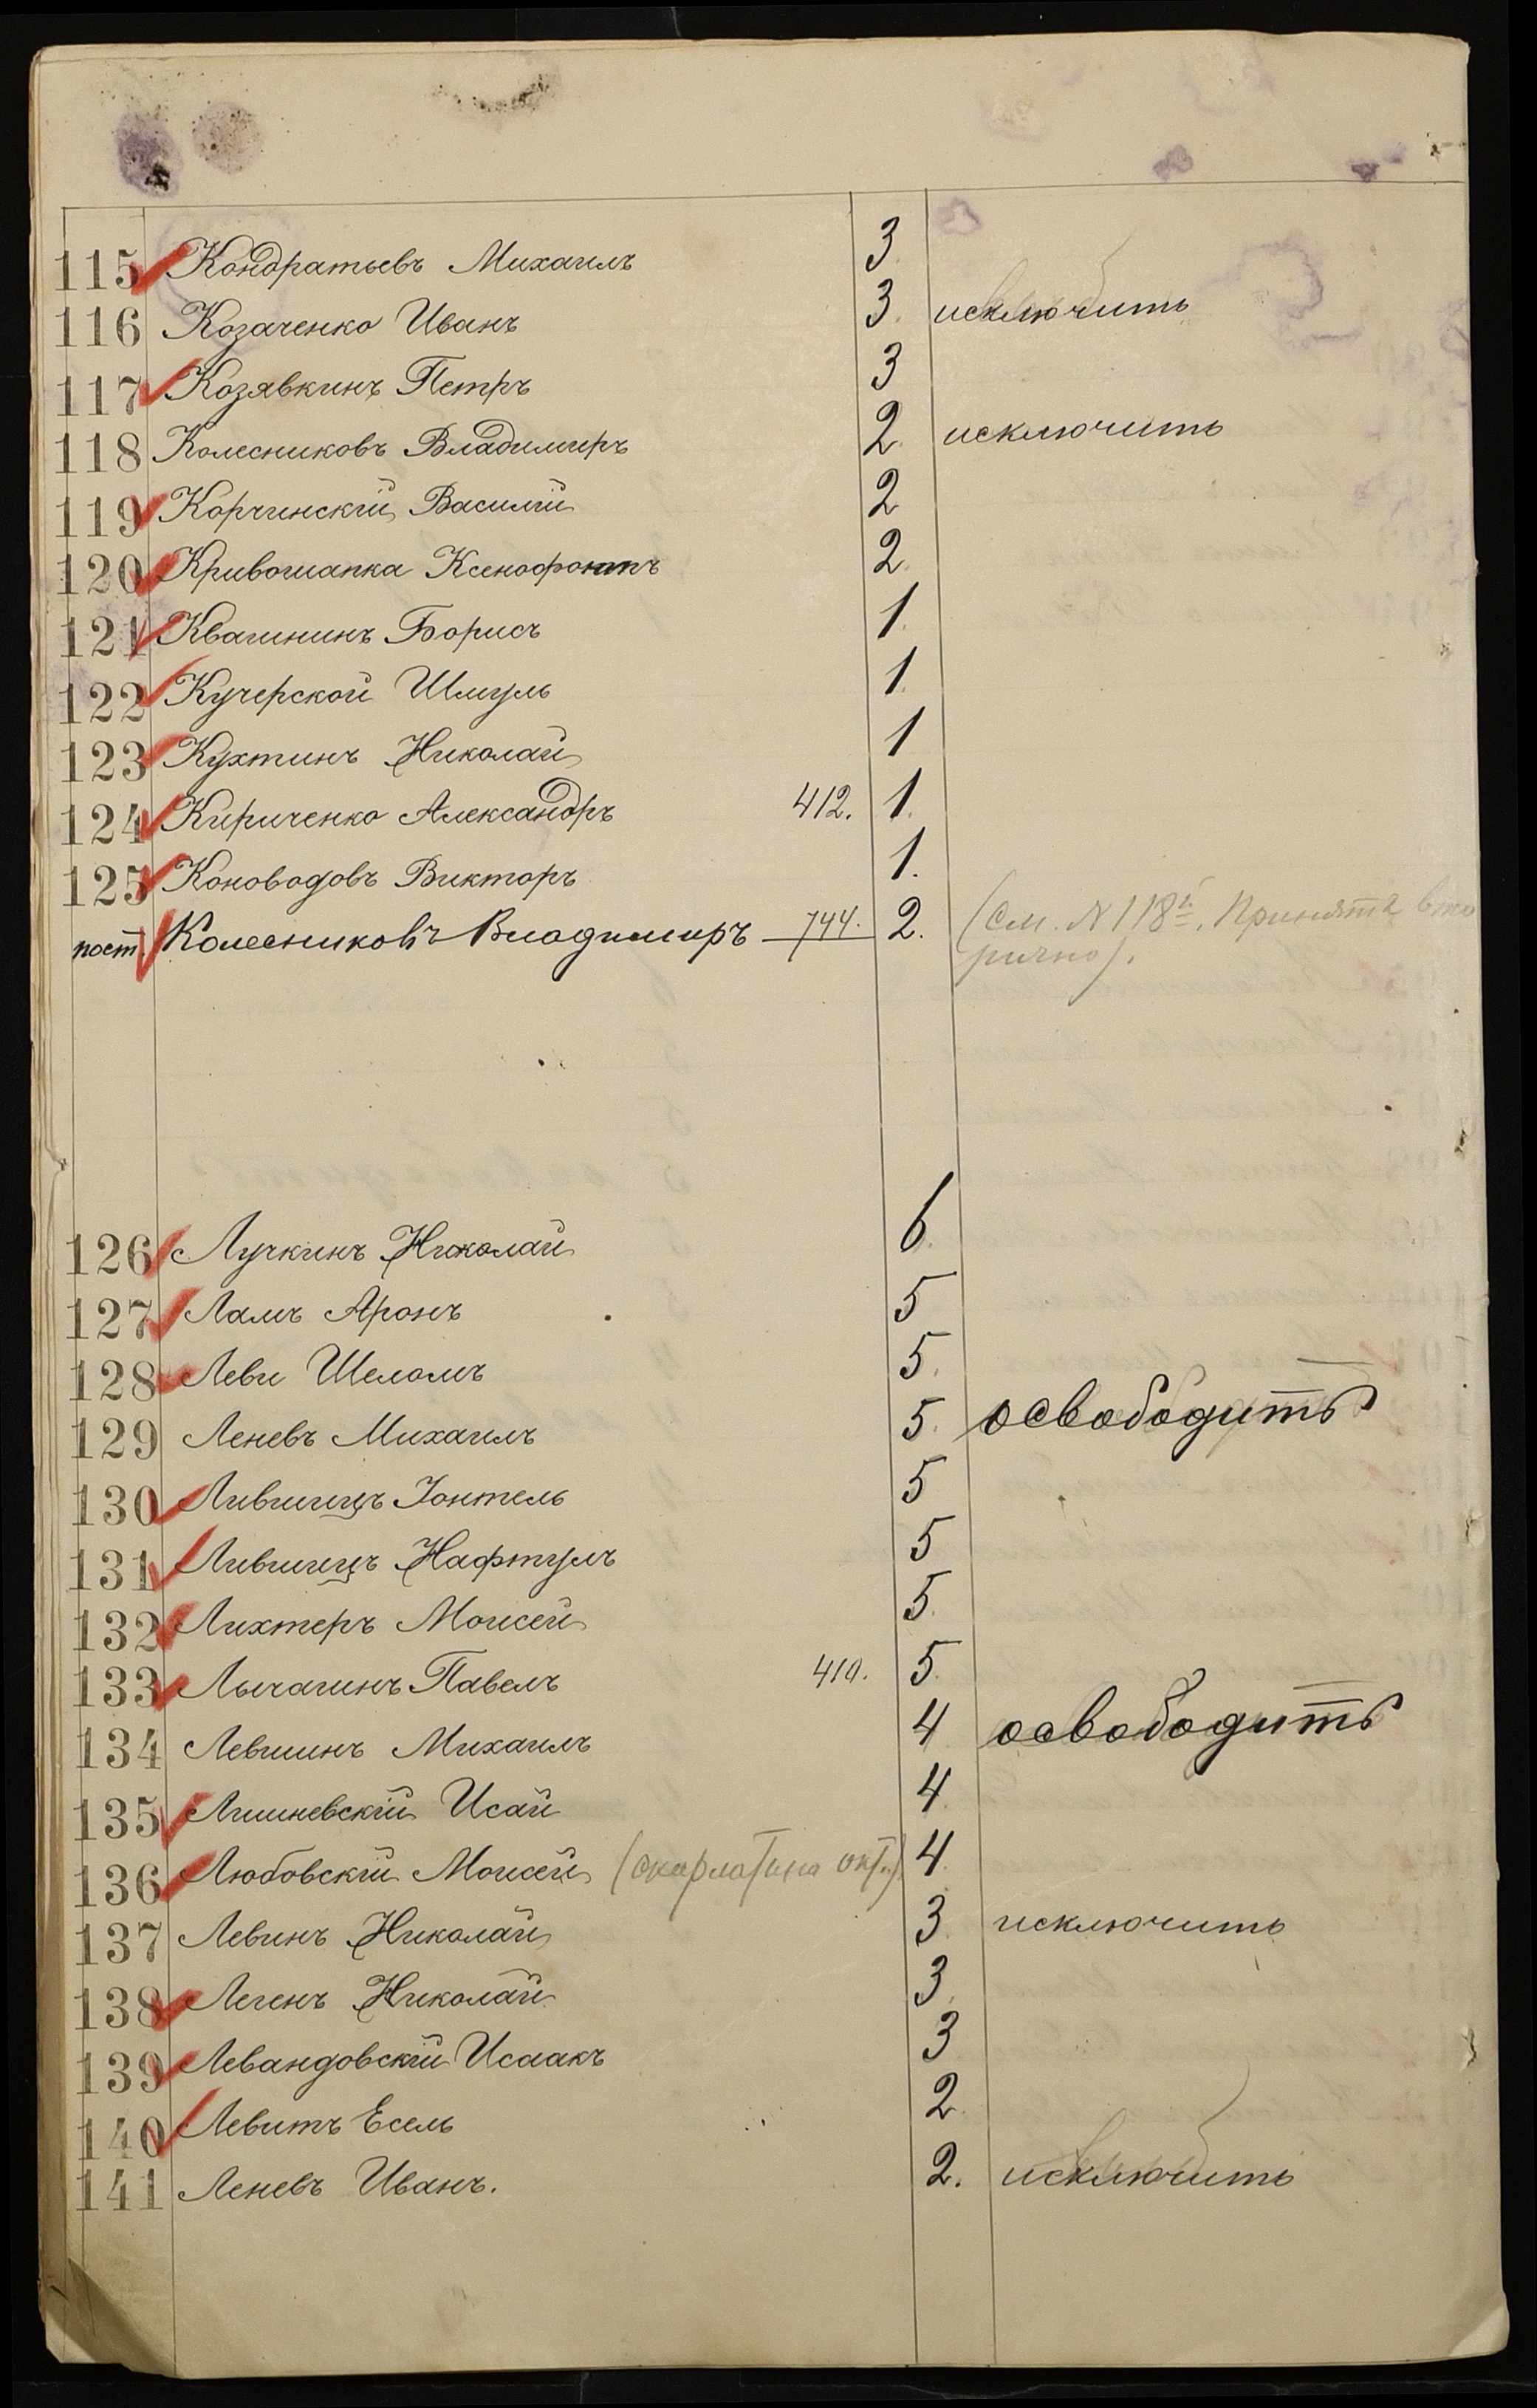 115 Кондратьевъ Михаилъ 3
116 Козаченко Иванъ 3. исключить
117 Козявкинъ Петръ 3
118 Колесниковъ Владимиръ 2. исключить
119 Корчинскій Василій 2
120 Кривошапка Ксенофонтъ 2.
121 Квашнинъ Борисъ 1.
122 Кучерской Шмуль 1.
123 Кухтинъ Николай 1
124 Кириченко Александръ 412. 1.
125 Коноводовъ Викторъ 1.
пост. Колесниковъ Владимиръ 744. 2. (см. № 118й. Принятъ вто
рично).
126 Лучкинъ Николай 6.
127 Ламъ Аронъ 5
128 Леви Шеломъ 5.
129 Леневъ Михаилъ 5. освободить
130 Лившицъ Іонтель 5
131 Лившицъ Нафтулъ 5
132 Лихтеръ Моисей 5.
133 Лычагинъ Павелъ 410. 5.
134 Левшинъ Михаилъ 4 освободить
135 Лишневскій Исай 4.
136 Любовскій Моисей (скарлатина окт.) 4.
137 Левинъ Николай 3. исключить
138 Легенъ Николай 3.
139 Левандовскій Исаакъ 3
140 Левитъ Есель 2.
141 Леневъ Иванъ. 2. исключить